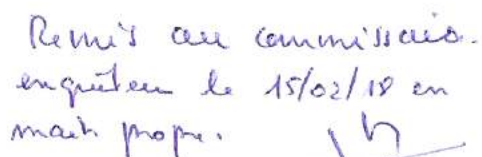 Remis au commissaire.
enquêteur le 15/02/18 en
main propre.